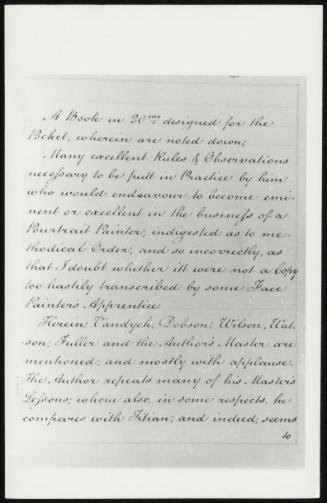 A Book in 20mo designed for the
Pcket; wherein are noted down;
Many excellent Rules & Observations
necessary to be putt in Practice by him
who would endeavour to become emi-
nent or excellent in the business of a
Pourtrait Painter, indigested as to me-
thodical Order, and so incorrectly, as
that I doubt whether itt were not a Copy
too hastily transcribed by some Face
Painter's Apprentice.
Herein, Vandyck, Dobson, Wilson, Wat-
son; Fuller and the Author's Master are
mentioned; and mostly with applause.
The Author repeats many of his Master's
Lessons; whom also, in some respects, he
compares with Titian; and indeed, seems
to